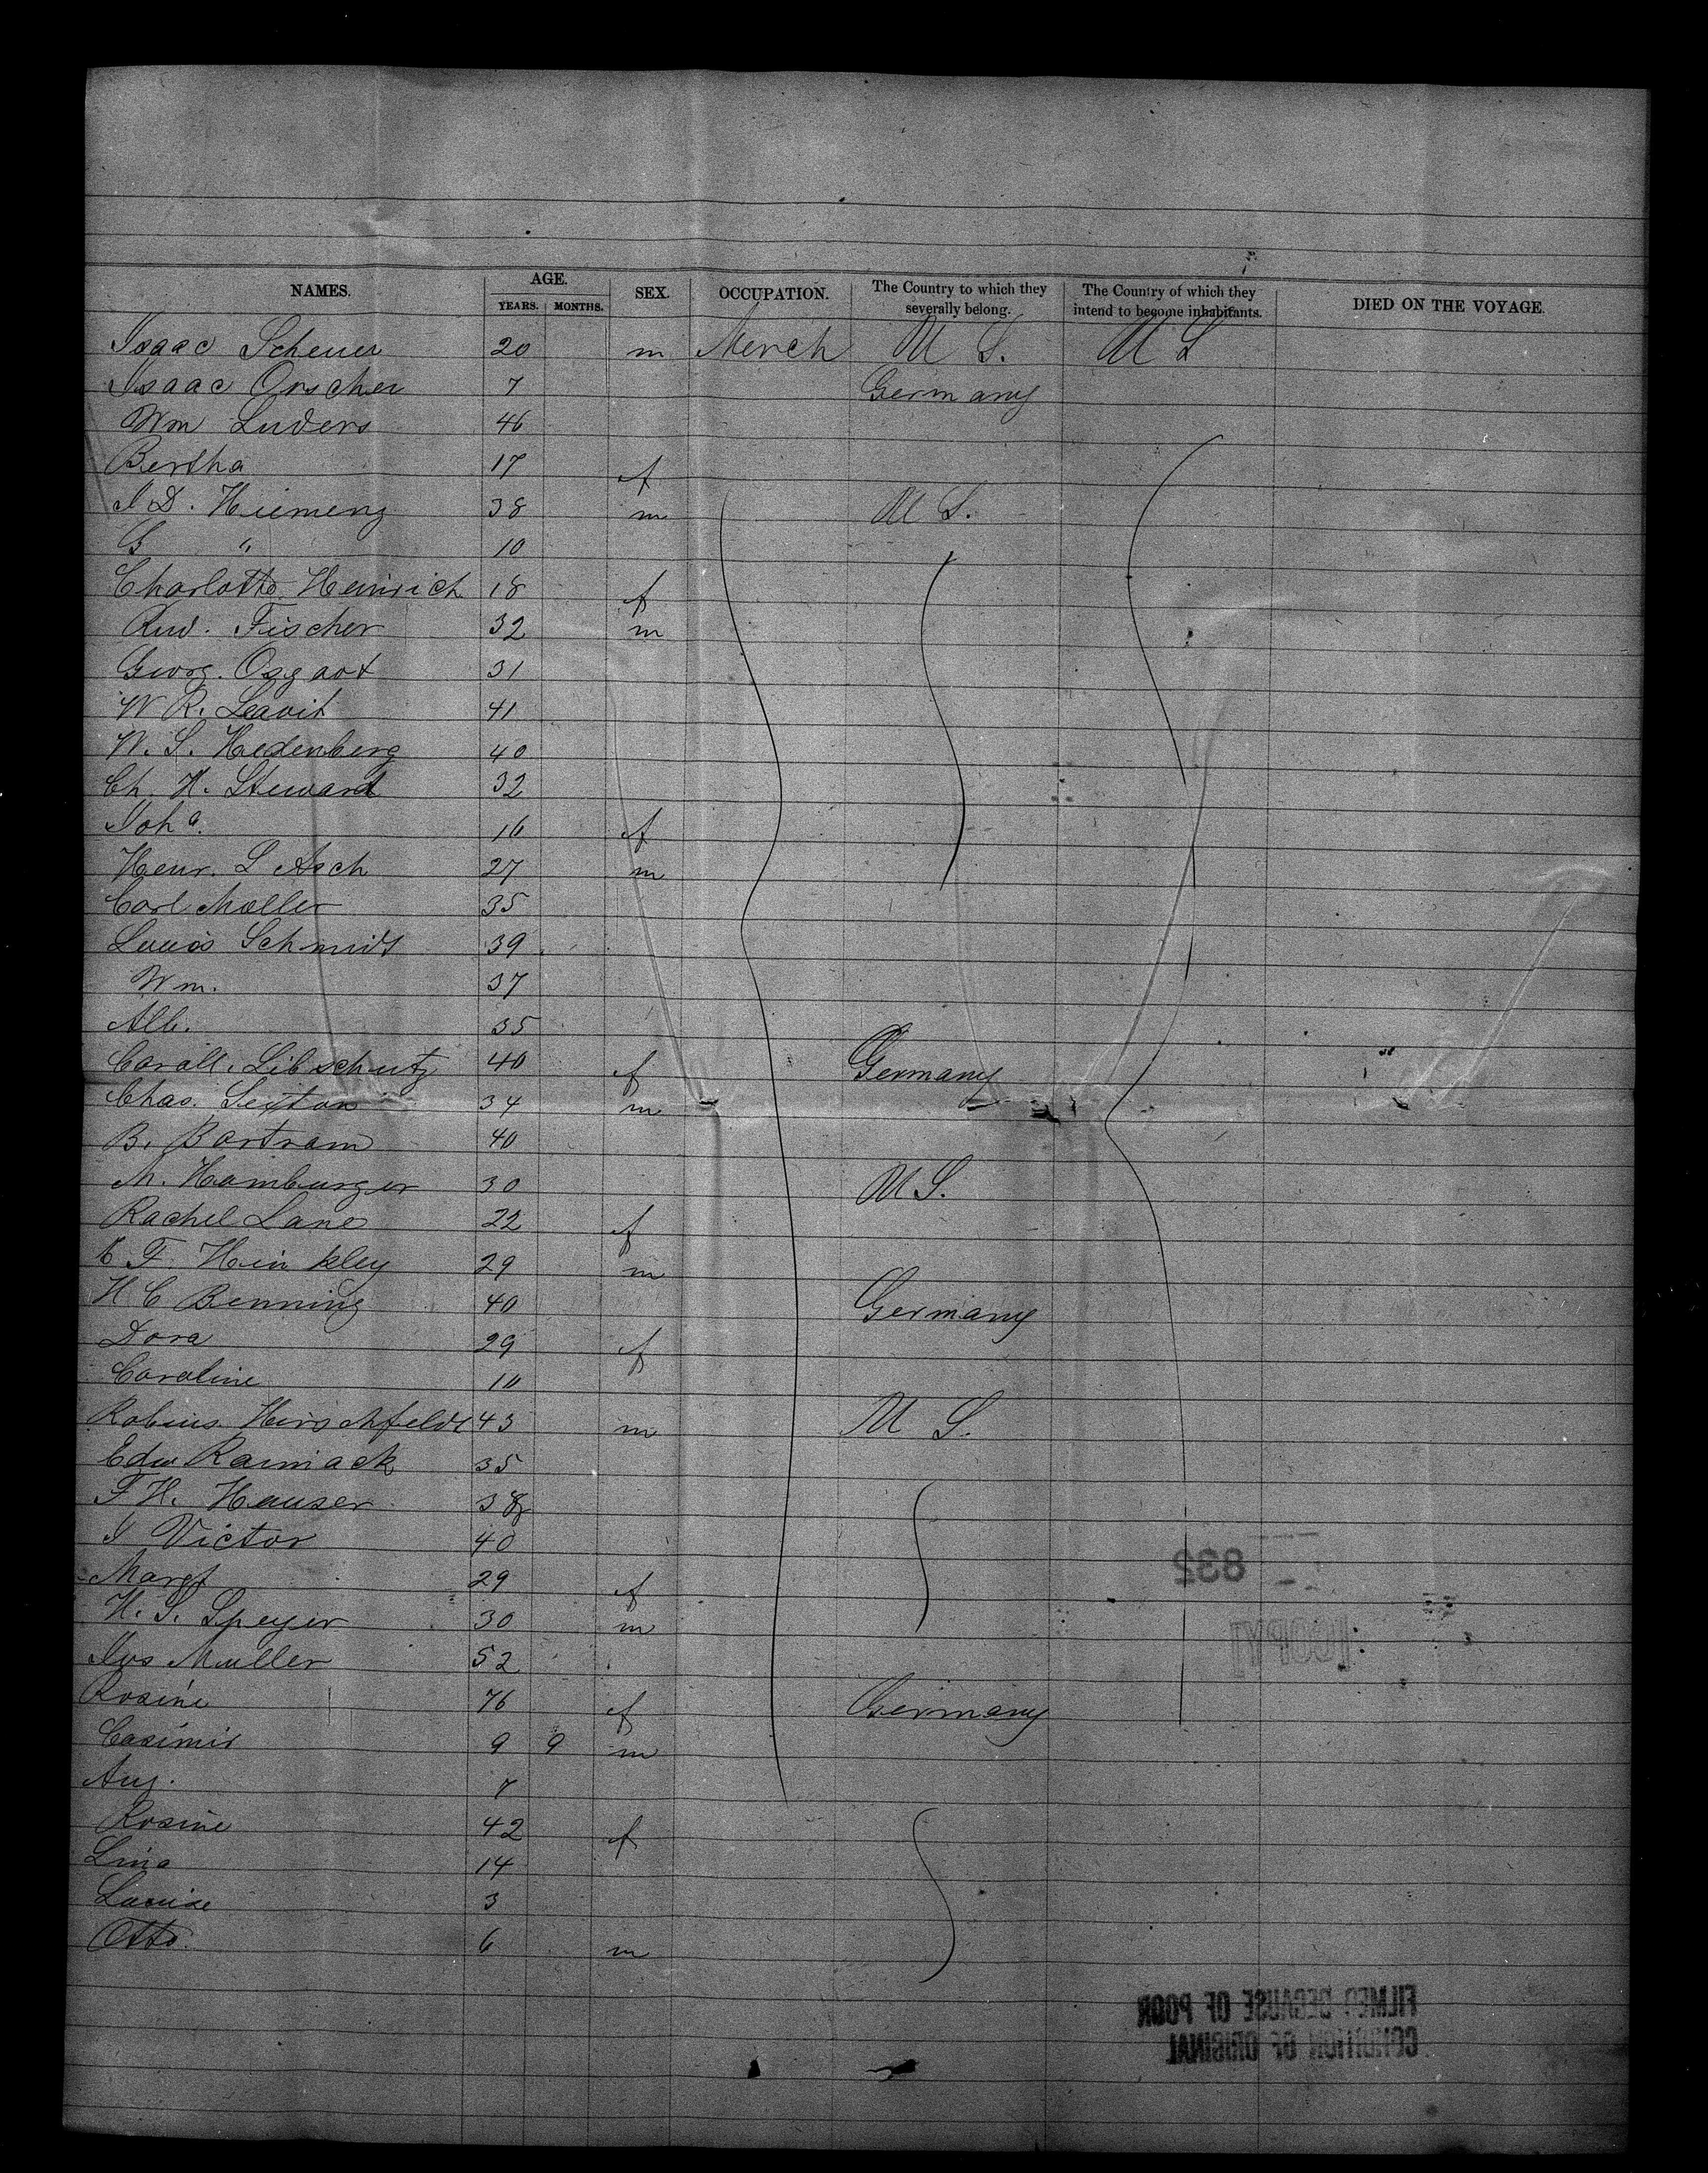 NAMES. AGE. YEARS. MONTHS. SEX. OCCUPATION. The Country to which they severally belong. The Country of which they intend to become inhabitants. DIED ON THE VOYAGE.
Isaac Scheuer 20 m Merch U S. U S
Isaac Orscher 7 Germany
Wm Luders 46
Bertha 17 f
I D. Hiemeng 38 m U S.
G " 10
Charlotte Heinrich 18 f
Rud. Fischer 32 m
Georg. Osgaot 31
W R. Leavit 41
W. S. Hedenberg 40
Ch. H. Steward 32
Joh a. 16 f
Henr. L Asch 27 m
Carl Moller 35
Louis Schmidt 39
Wm. 37
Alb. 35
Caroll. Libschutz 40 f Germany
Chas. Sexton 34 m
B. Bartram 40
M. Hamburger 30 U S.
Rachel Lane 22 f
E F. Hinkley 29 m
H C Benning 40 Germany
Dora 29 f
Caroline 10
Hirschfeldt 43 m U S.
Edw 35
F H. Hauser 38
I Victor 40
Margt 29 f
H. S. Speyer 30 m
Jos Muller 52
Rosine 76 f Germany
Casimir 9 9 m
Aug. 7
Rosine 42 f
Lina 14
Louise 3
Otto. 6 m
832
[COPY]
FILMED BECAUSE OF POOR
CONDITION OF ORIGINAL